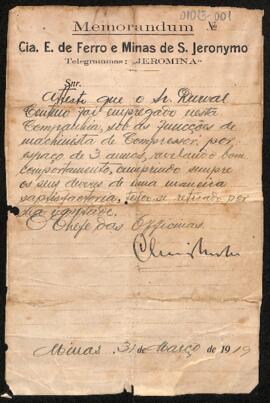 01023-001
Memorandum №
Cia. E. de Ferro e Minas de S. Jeronymo
Telegrammas: „JEROMINA"
Snr.
Attesto que o Sr. Durval
foi empregado nesta
Companhia, sob as funcções de
machinista de Compressor, por
espaço de 3 annos, revelando bom
comportamento, cumprindo sempre
os seus deveres de uma maneira
satisfactoria, se retirado por
sua vontade.
O Chefe das Officinas
Minas 31 de Março de 1919